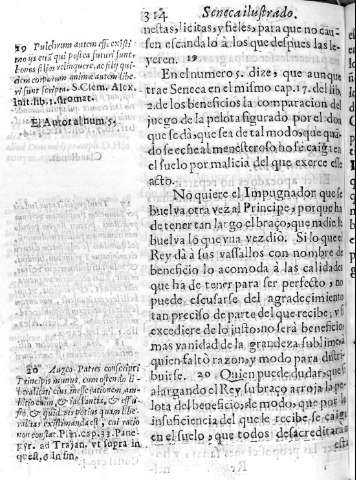 314 Seneca ilustrado.
nestas, licitas, y fieles, para que no cau-
sen escandalo à los que despues las le-
yeren. 19
En el numero 5. dize, que aunque
trae Seneca en el mismo cap. 17. del lib.
2. de los beneficios la comparacion del
juego de la pelota figurado por el don
que se dà, que sea de tal modo, que quã-
do se eche al menesteroso, no se caiga en
el suelo por malicia del que exerce este
acto.
No quiere el Impugnador que se
buelva otra vez al Principe, porque ha
de tener tan largo el braço, que nadie le
buelva lo que vna vez diò. Si lo que el
Rey dà à sus vassallos con nombre de
beneficio lo acomoda à las calidades
que ha de tener para ser perfecto, no
puede escusarse del agradecimiento
tan preciso de parte del que recibe; y si
excediere de lo justo, no serà beneficio,
mas vanidad de la grandeza sublime, à
quien faltò razon, y modo para distri-
buirse. 20 Quien puede dudar, que si
alargando el Rey su braço arroja la pe-
lota del beneficio, de modo, que por la
insuficiencia del que le recibe se caiga
en el suelo, que todos desacreditaràn
esta
19 Pulchrum autem est, existi-
mo
bonos filios relinquere, ac filij qui-
dem corporum, animæ autem libe-
ri sunt scripta. S. Clem. Alex.
Init. lib. 1. stromat.
El Autor al num. 5.
20 Augeo Patres conscripti
Principis munus, cum ostendo li-
beralitati eius inesse rationem, am-
bitio enim, & iactantia, & effu-
sio, & quidvis potius quam libe-
ralitas existimanda est, cui ratio
non constat. Plin. cap. 33. Pane-
gyr. ad Trajan. vt supra in
quest. 6. in fin.